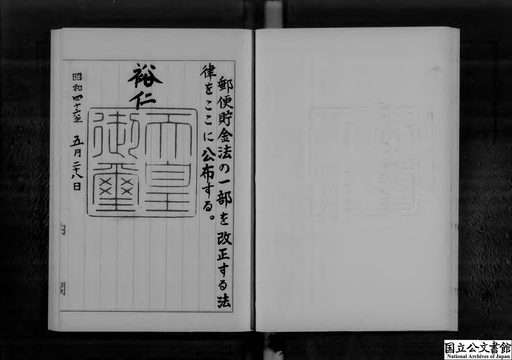 郵便貯金法の一部を改正する法
律をここに公布する。
裕仁
天皇
御璽
昭和四十三年五月二十八日
国立公文書館
National Archives of Japan